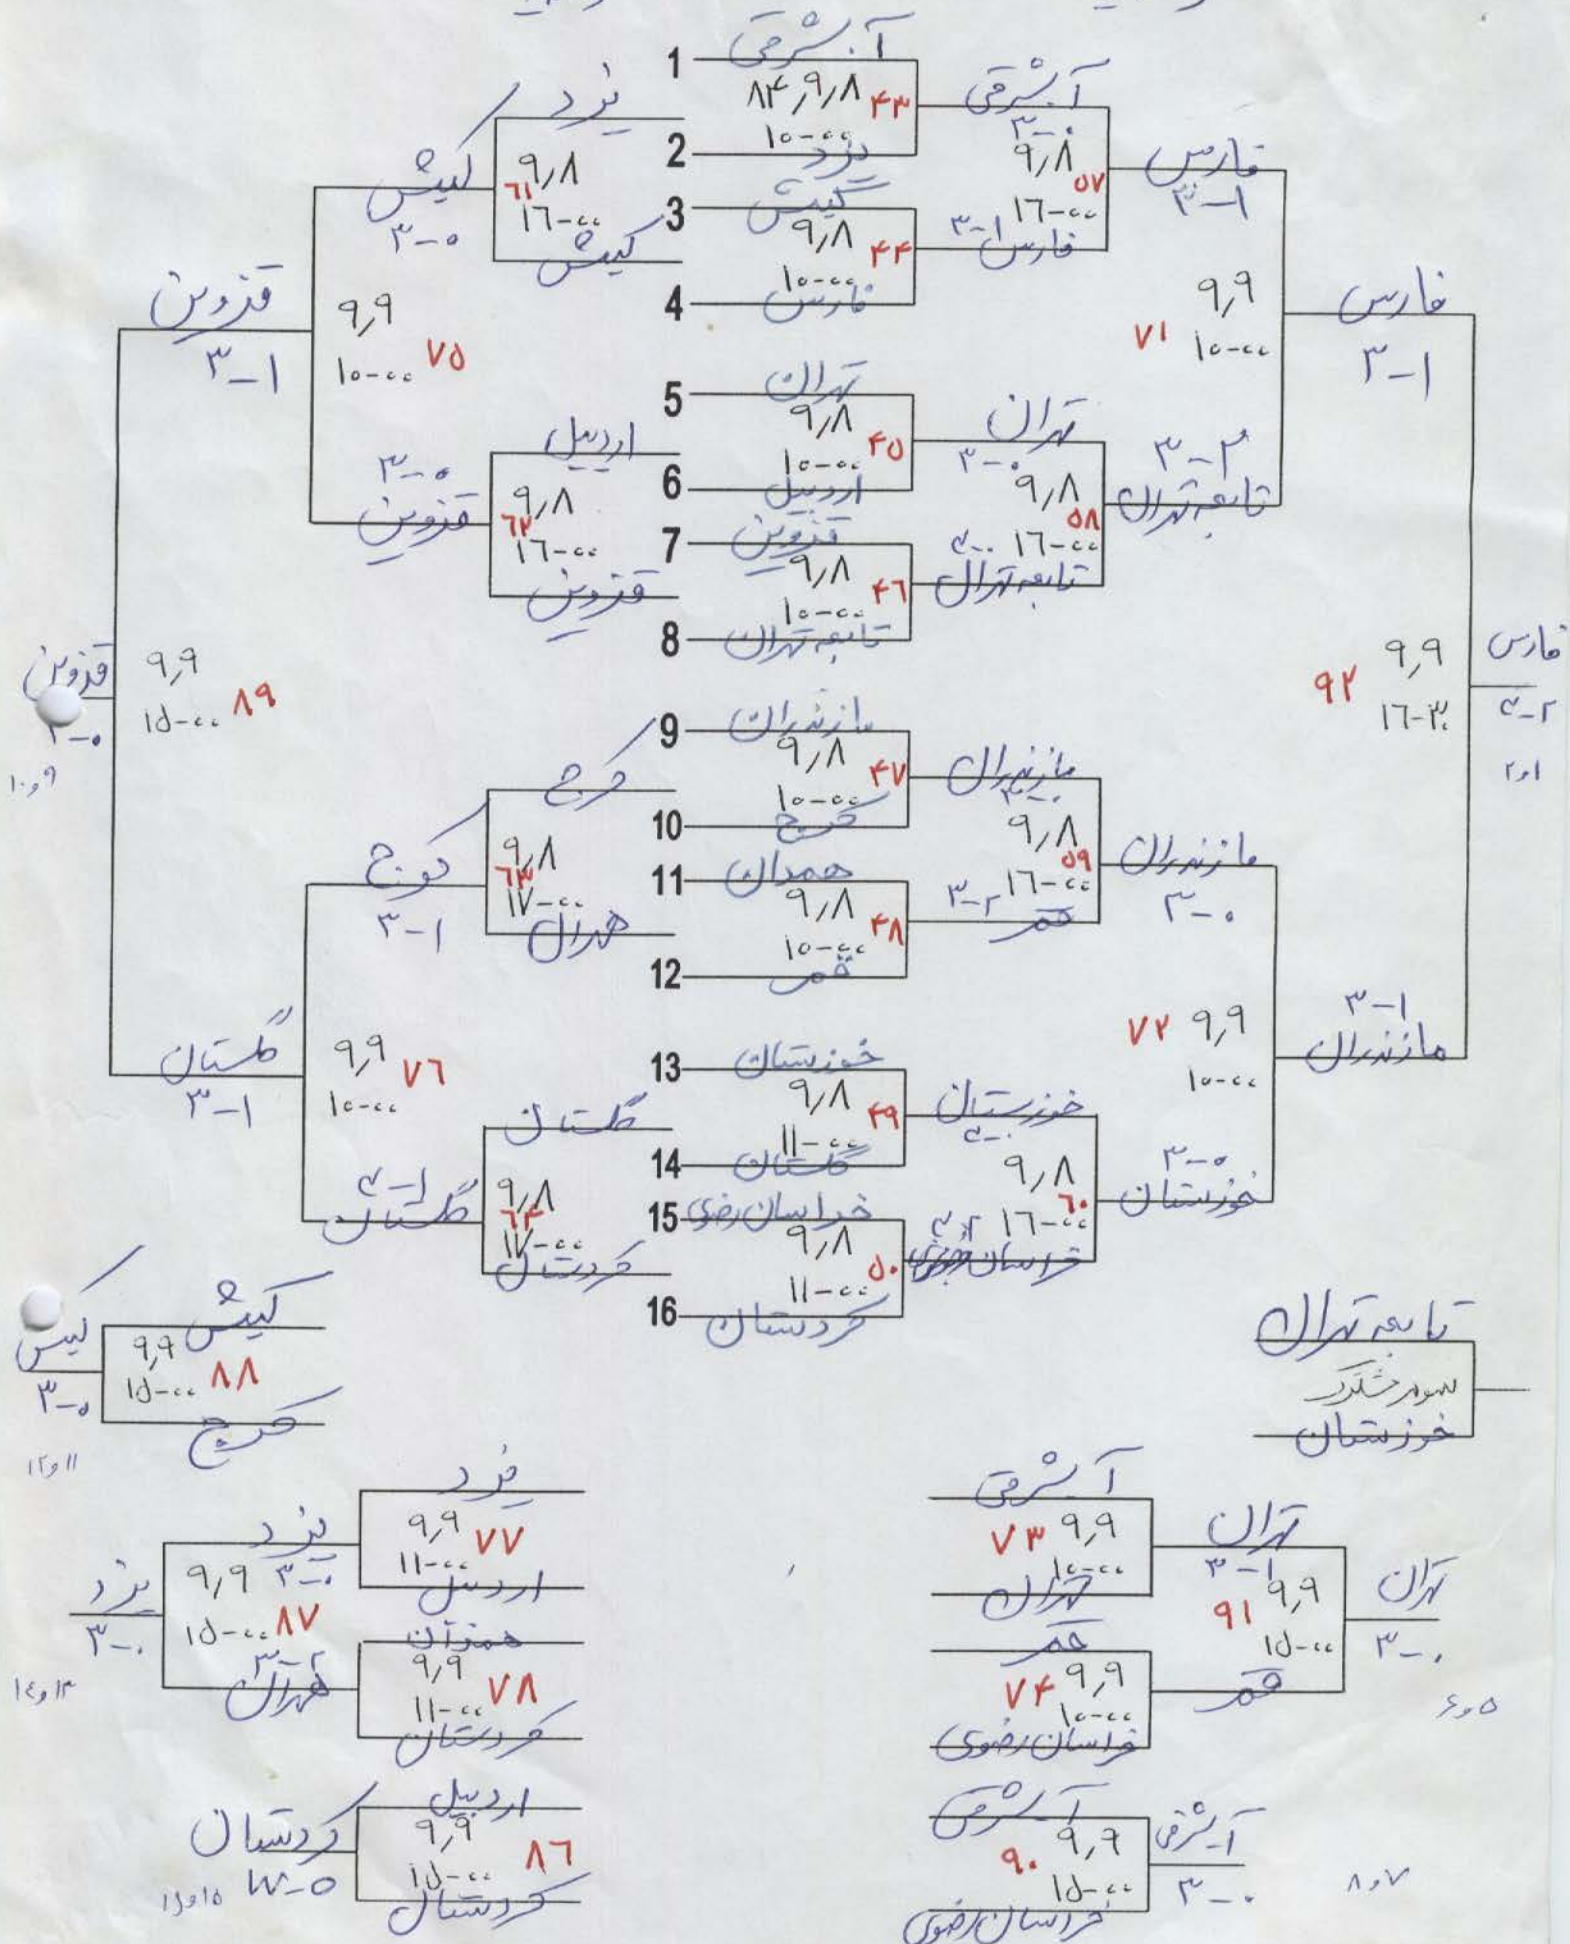 1 آ.شرقی
۸۴,۹,۸ ۴۳
۱۰-۰۰
2 یزد
3 کیش
۹,۸ ۴۴
۱۰-۰۰
4 فارس
5 تهران
۹,۸ ۴۵
۱۰-۰۰
6 اردبیل
7 قزوین
۹,۸ ۴۶
۱۰-۰۰
8 تابعه تهران
9 مازندران
۹,۸ ۴۷
۱۰-۰۰
10 کرج
11 همدان
۹,۸ ۴۸
۱۰-۰۰
12 قم
13 خوزستان
۹,۸ ۴۹
۱۱-۰۰
14 گلستان
15 خراسان رضوی
۹,۸ ۵۰
۱۱-۰۰
16 کردستان
آ.شرقی
۳-۰
۹,۸ ۵۷
۱۶-۰۰
۳-۱
فارس
تهران
۳-۰
۹,۸ ۵۸
۳-۰ ۱۶-۰۰
تابعه تهران
مازندران
۳-۰
۹,۸ ۵۹
۱۶-۰۰
۳-۲
قم
خوزستان
۳-۰
۹,۸ ۶۰
۳-۲ ۱۶-۰۰
خراسان رضوی
فارس
۳-۱
۹,۹
۷۱ ۱۰-۰۰
۳-۲
تابعه تهران
مازندران
۳-۰
۷۲ ۹,۹
۱۰-۰۰
۳-۰
خوزستان
فارس
۳-۱
۹۲ ۹,۹
۱۶-۳۰
۳-۱
مازندران
فارس
۳-۲
۱و۲
یزد
۹,۸
۶۱
۱۶-۰۰
کیش
اردبیل
۹,۸
۶۲
۱۶-۰۰
قزوین
کرج
۹,۸
۶۳
۱۷-۰۰
همدان
گلستان
۹,۸
۶۴
۱۷-۰۰
کردستان
کیش
۳-۰
۹,۹
۱۰-۰۰ ۷۵
۳-۰
قزوین
کرج
۳-۱
۹,۹ ۷۶
۱۰-۰۰
۳-۱
گلستان
قزوین
۳-۱
۹,۹
۱۵-۰۰ ۸۹
گلستان
۳-۱
قزوین
۳-۰
۹و۱۰
کیش
۹,۹
۱۵-۰۰ ۸۸
کرج
کیش
۳-۰
۱۱و۱۲
تابعه تهران
سوم مشترک
خوزستان
یزد
۹,۹ ۷۷
۱۱-۰۰
اردبیل
همدان
۹,۹ ۷۸
۱۱-۰۰
کردستان
یزد
۹,۹ ۳-۰
۱۵-۰۰ ۸۷
۳-۲
همدان
یزد
۳-۰
۱۳و۱۴
اردبیل
۹,۹ ۸۶
۱۵-۰۰
کردستان
کردستان
۳-۰
۱۵و۱۶
آ.شرقی
۷۳ ۹,۹
۱۰-۰۰
تهران
قم
۷۴ ۹,۹
۱۰-۰۰
خراسان رضوی
تهران
۳-۱
۹۱ ۹,۹
۱۵-۰۰
قم
تهران
۳-۰
۵و۶
آ.شرقی
۹۰ ۹,۹
۱۵-۰۰
خراسان رضوی
آ.شرقی
۳-۰
۷و۸